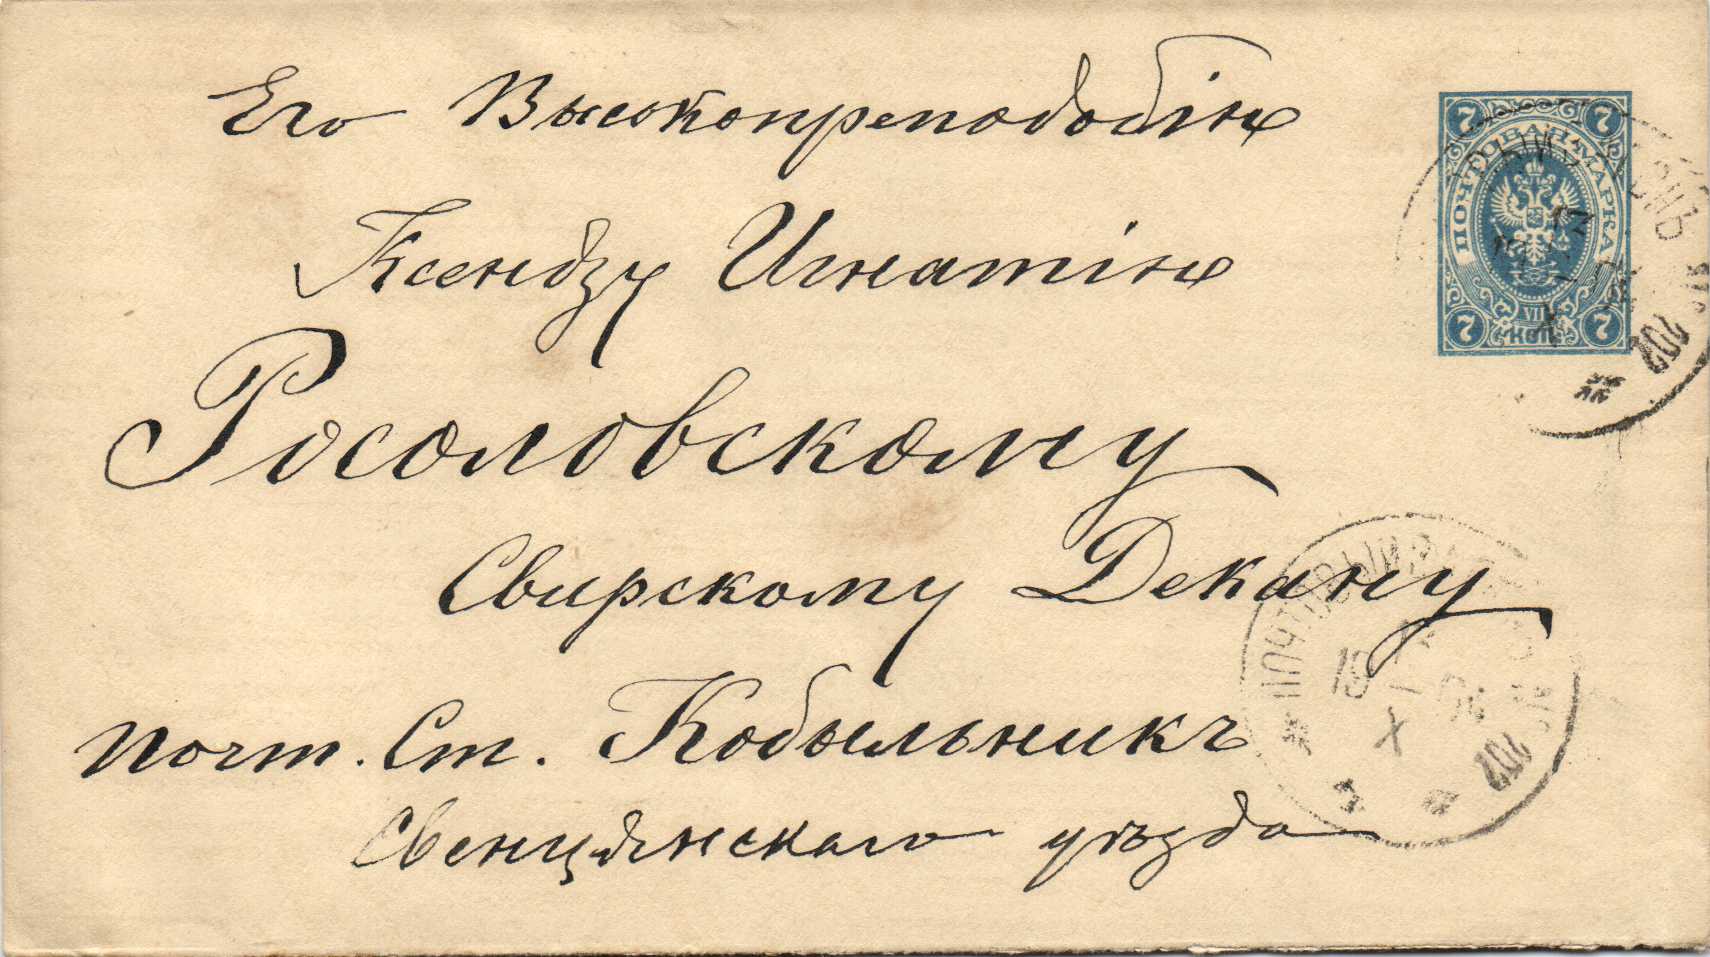 Его Высокопреподобію
Ксендзу Игнатію
Росоловскому
Свирскому Декану
почт. Ст. Кобыльникъ
Свенцянскаго уѣзда
7 7
ПОЧТОВАЯ МАРКА
VII
КОП.
7 7
17
X
102
ПОЧТОВЫЙ
19
X
102